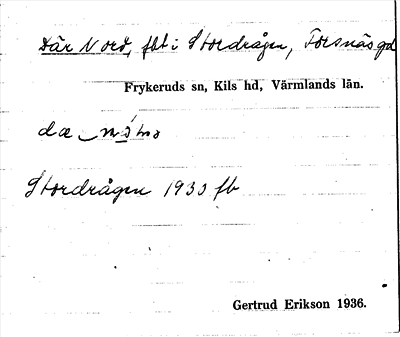 Där Nord, fbt i Stordrågen, Forsnäs gd
Frykeruds sn, Kils hd, Värmlands län.
dæ
Stordrågen 1933 fb
Gertrud Erikson 1936.